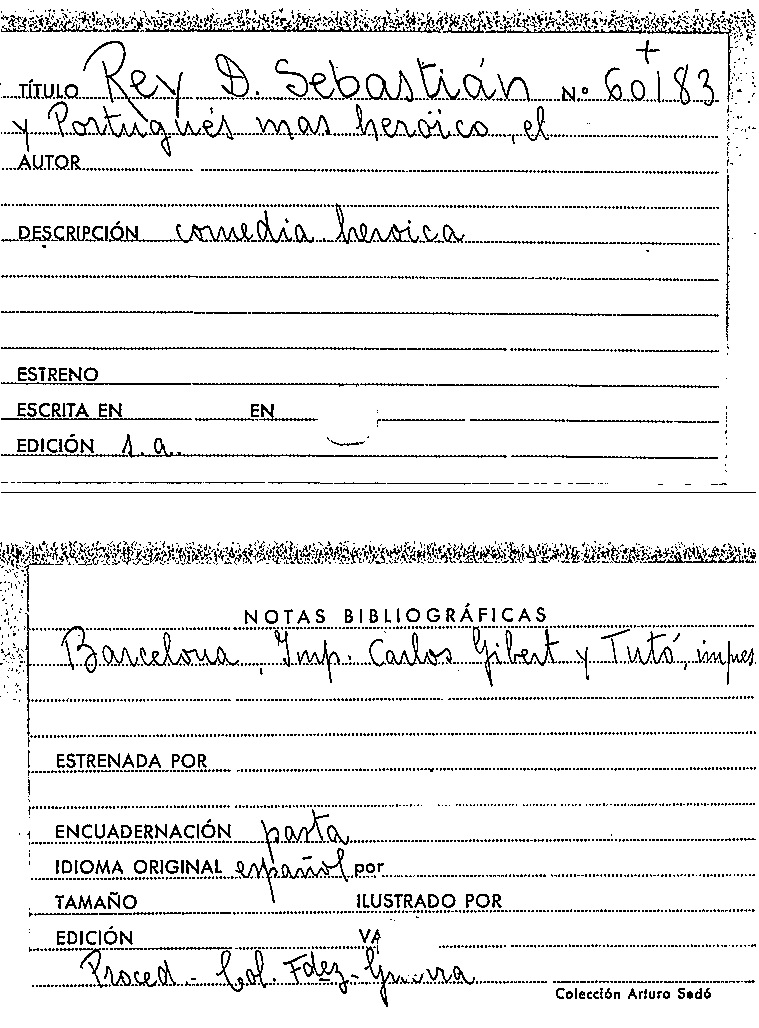 +
TÍTULO Rey D. Sebastián N.º 60183
y Portugués mas heroico, el
AUTOR
DESCRIPCIÓN comedia heroica
ESTRENO
ESCRITA EN EN
EDICIÓN s. a.
NOTAS BIBLIOGRÁFICAS
Barcelona, Imp. Carlos Gibert y Tutó, impres
ESTRENADA POR
ENCUADERNACIÓN pasta
IDIOMA ORIGINAL español por
TAMAÑO ILUSTRADO POR
EDICIÓN VA
Proced - Col. Fdez - Guerra
Colección Arturo Sedó